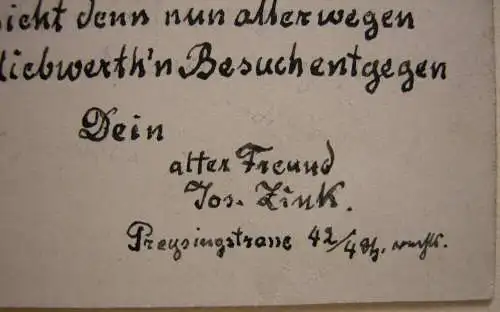 sieht denn nun allerwegen
liebwerth'n Besuch entgegen
Dein
alter Freund
Jos. Zink.
Preysingstrasse 42/4